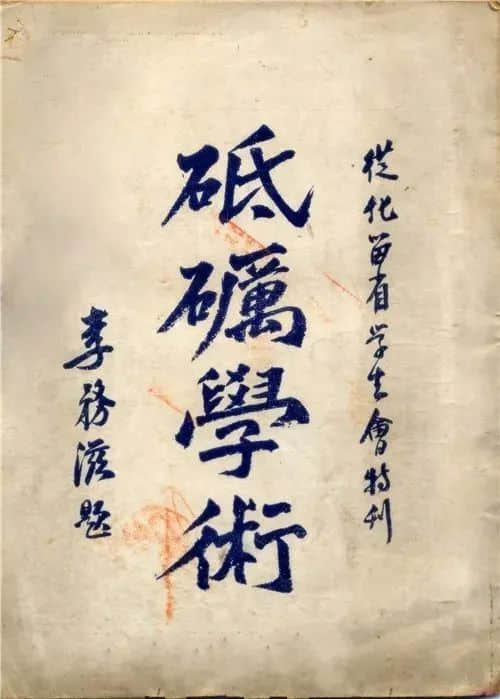 從化留省学生會特刊
砥礪學術
李務滋題